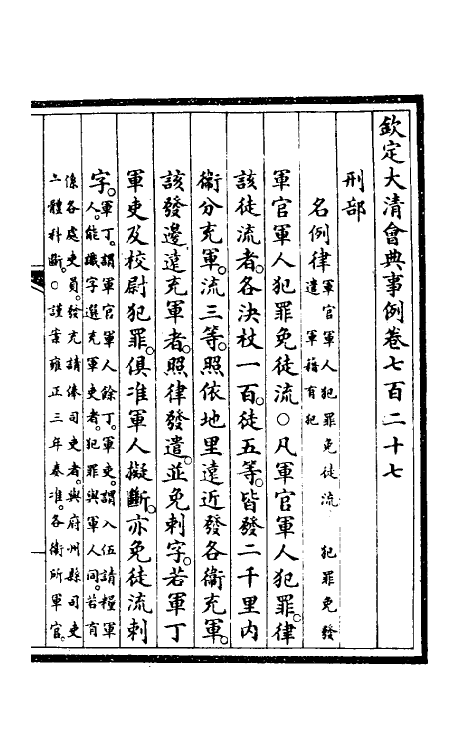 欽定大清會典事例卷七百二十七
刑部
名例律軍官軍人犯罪免徒流 犯罪免發
遣 軍籍有犯
軍官軍人犯罪免徒流○凡軍官軍人犯罪。律
該徒流者。各決杖一百。徒五等。皆發二千里內
衞分充軍。流三等。照依地里遠近發各衞充軍。
該發邊遠充軍者。照律發遣。並免刺字。若軍丁
軍吏及校尉犯罪。俱准軍人擬斷。亦免徒流刺
字。軍丁。謂軍官軍人餘丁。軍吏。謂入伍請糧軍
人。能識字選充軍吏者。犯罪與軍人同。若有
係各處吏員。發充請俸司吏者。與府州縣司吏
一體科斷。○謹案雍正三年奏准。各衞所軍官。